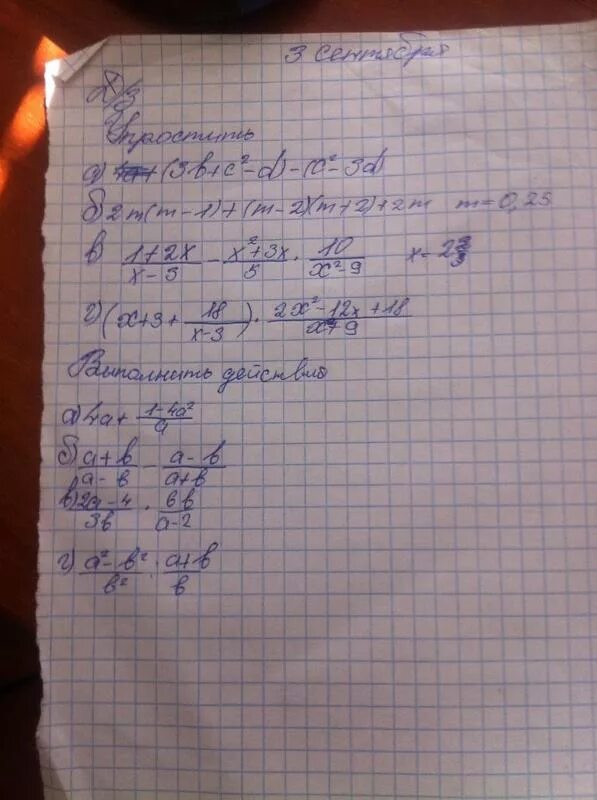 3 сентября
Д/з
Упростить
а) (3b+c²-d)-(c²-3d)
б) 2m(m-1)+(m-2)(m+2)+2m m=0,25
в) (1+2x)/(x-3) - (x²+3x)/5 · 10/(x²-9)
г) (x+3+18/(x-3)) · (2x²-12x+18)/(x²+9)
Выполнить действия
а) 4a+(1-4a²)/a
б) (a+b)/(a-b) - (a-b)/(a+b)
в) (2a-4)/3b · 6b/(a-2)
г) (a²-b²)/b² : (a+b)/b